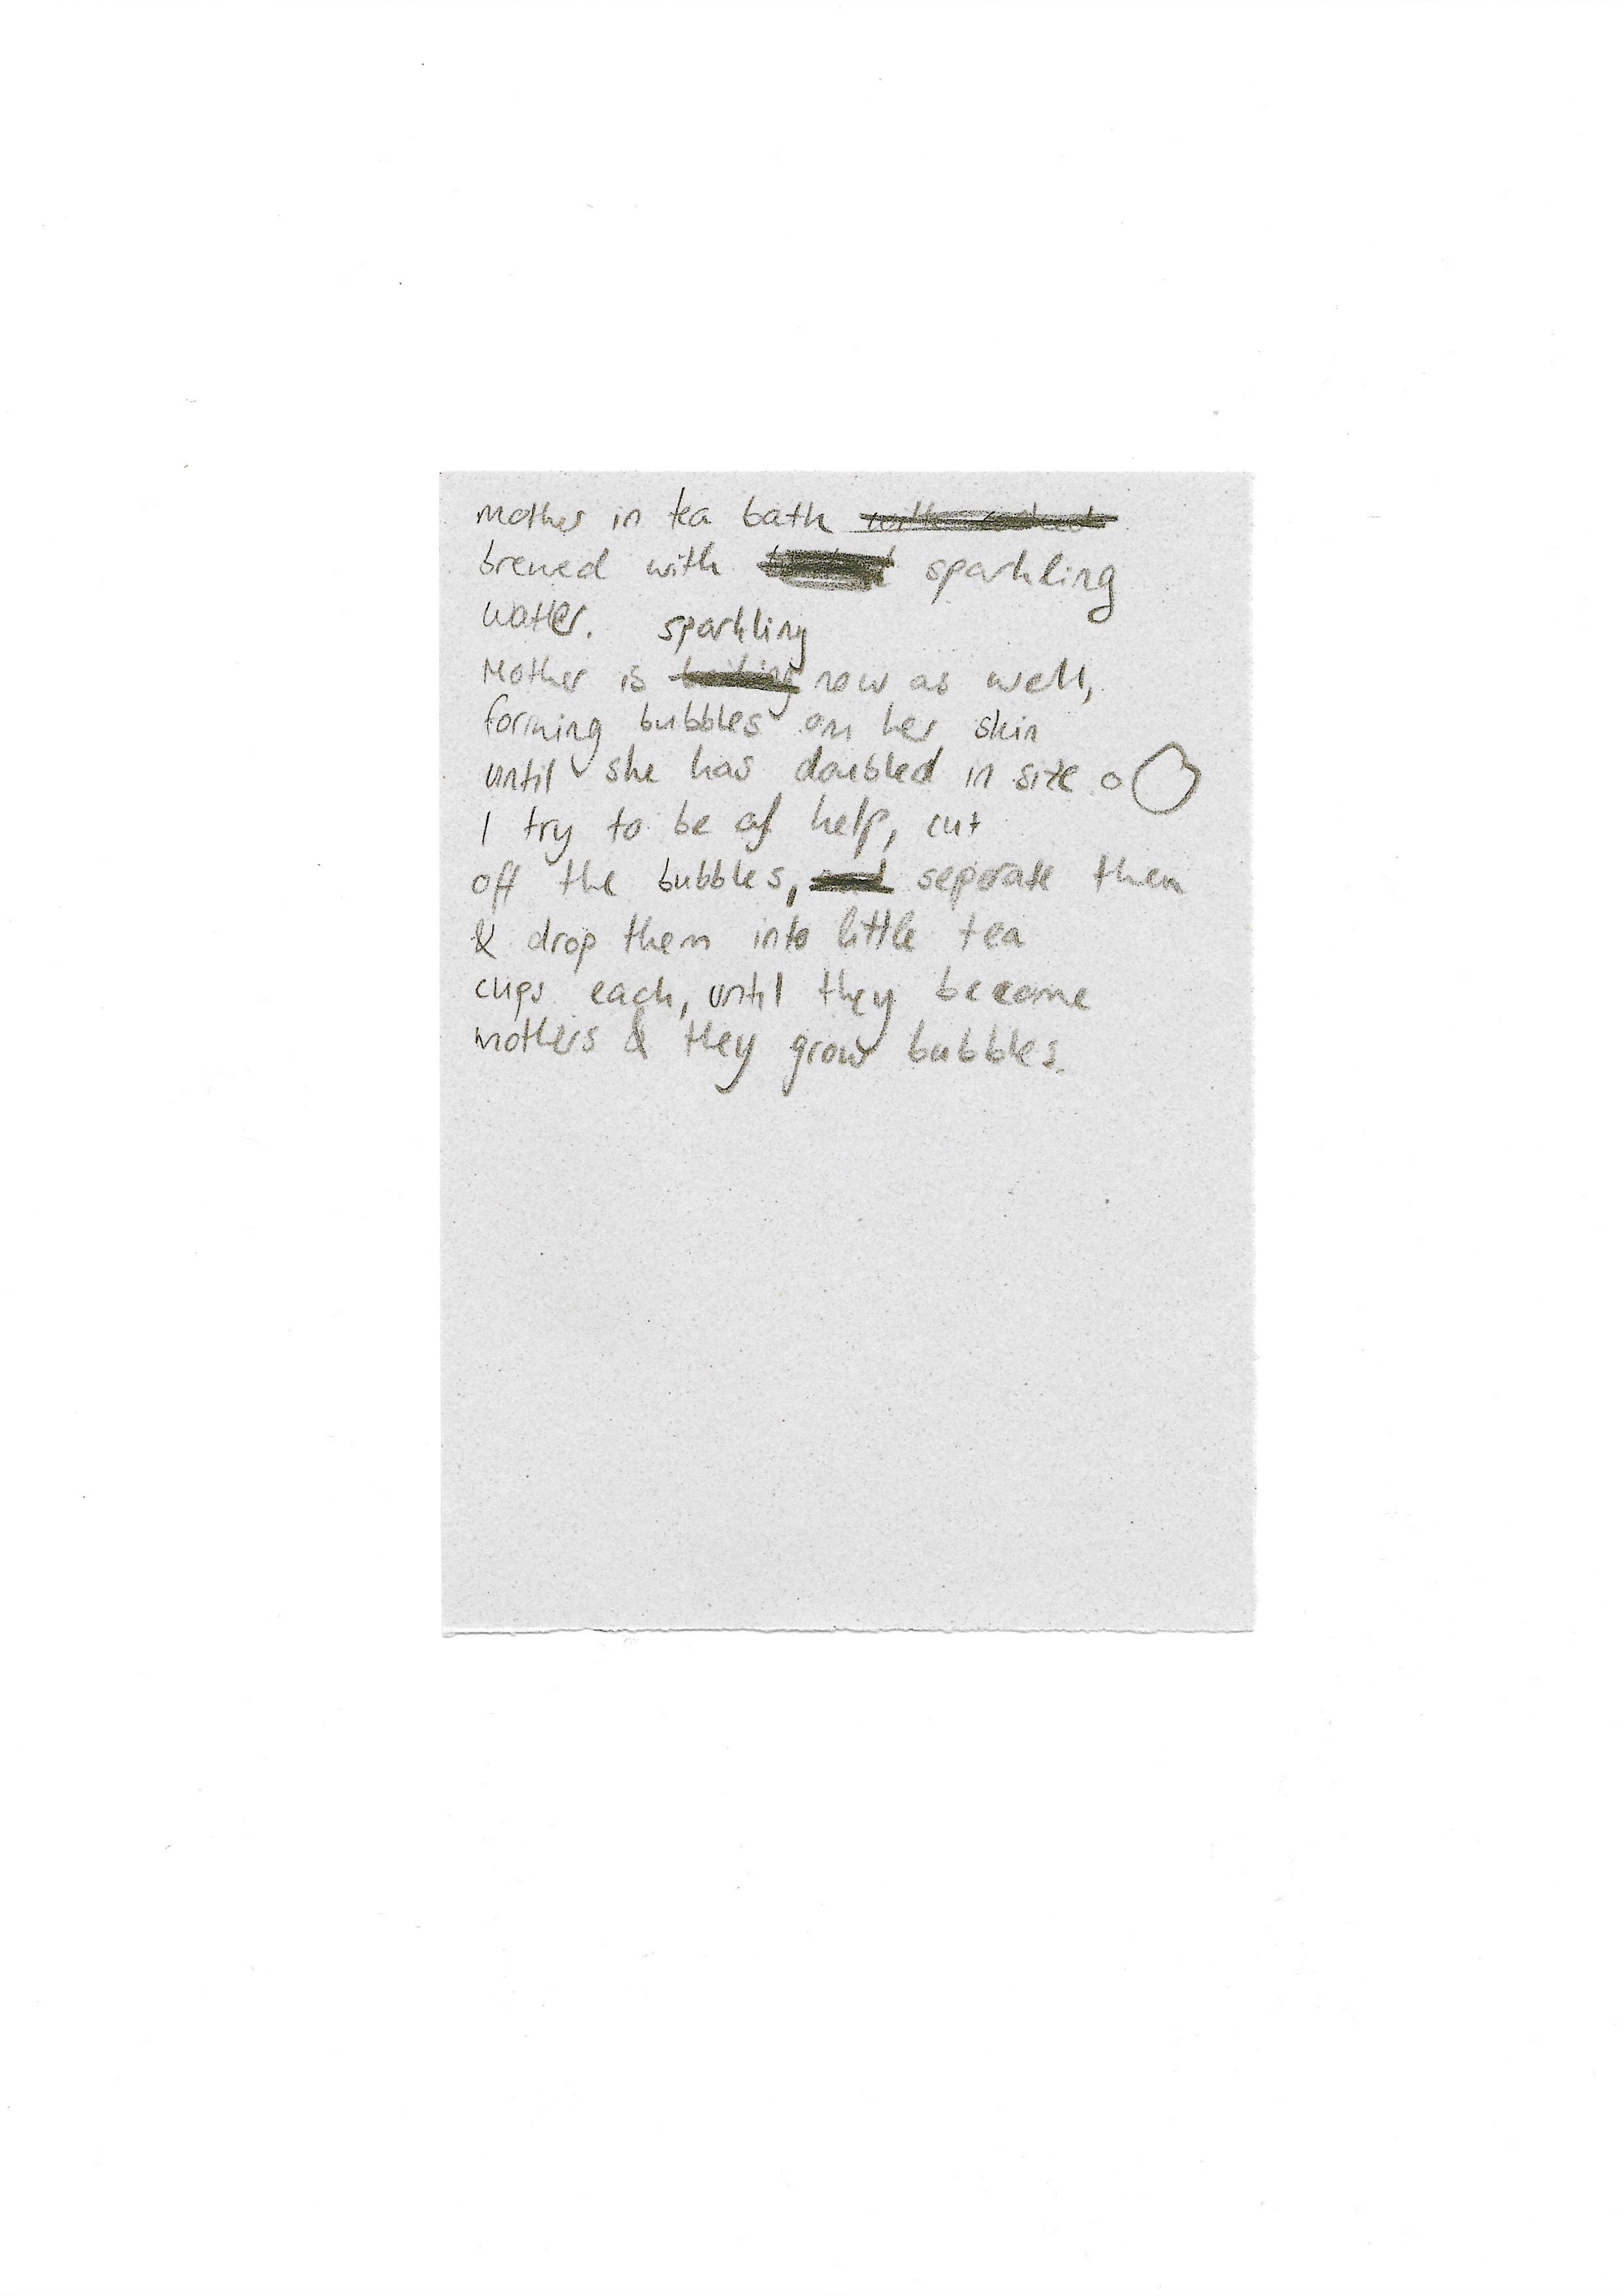 Mother in tea bath
brewed with sparkling
water. sparkling
Mother is now as well,
forming bubbles on her skin
until she has doubled in size.
I try to be of help, cut
off the bubbles, seperate them
& drop them into little tea
cups each, until they become
mothers & they grow bubbles.